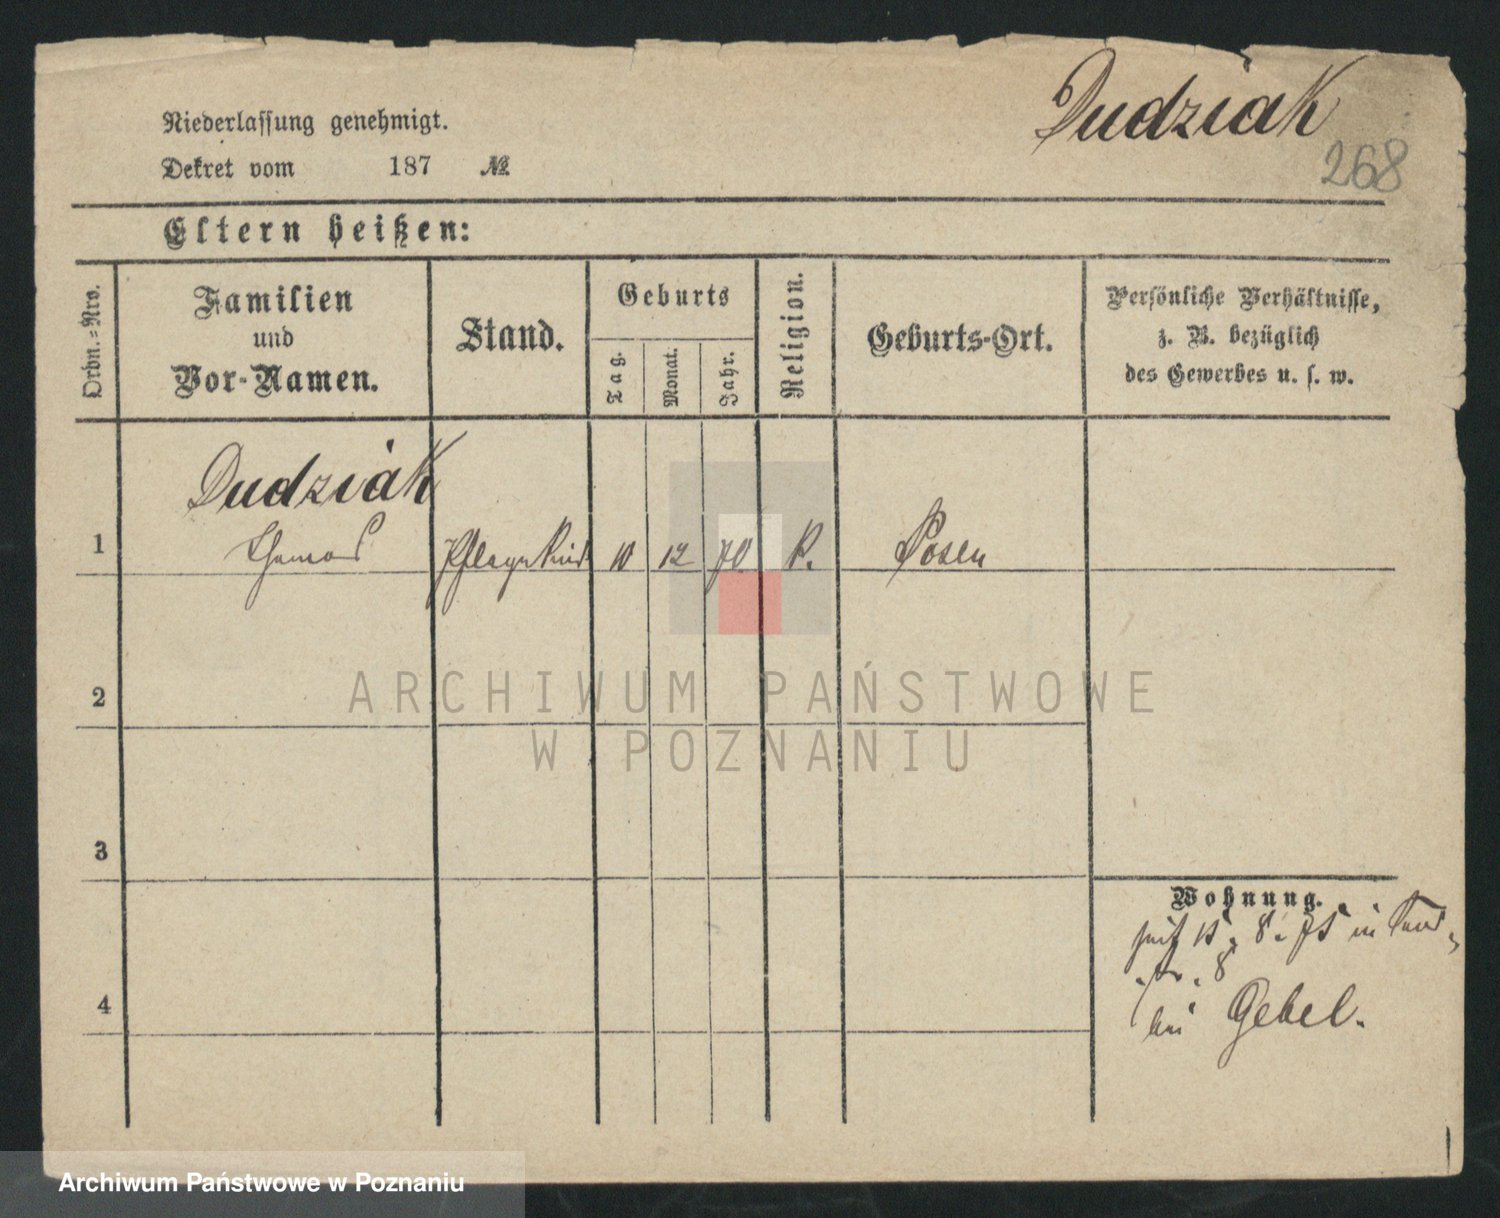 Dudziak
268
Niederlassung genehmigt.
Dekret vom 187 №
Eltern heißen:
Ordn.=Nro.
Familien
und
Vor-Namen.
Stand.
Geburts
Tag.
Monat.
Jahr.
Religion.
Geburts-Ort.
Persönliche Verhältnisse,
z. B. bezüglich
des Gewerbes u. s. w.
Dudziak
1 Thomas Pflegekind 10 12 70 K. Posen
2
3
4
Wohnung.
seit 15. 8. 75 in
8
bei Gebel.
ARCHIWUM PAŃSTWOWE
W POZNANIU
Archiwum Państwowe w Poznaniu